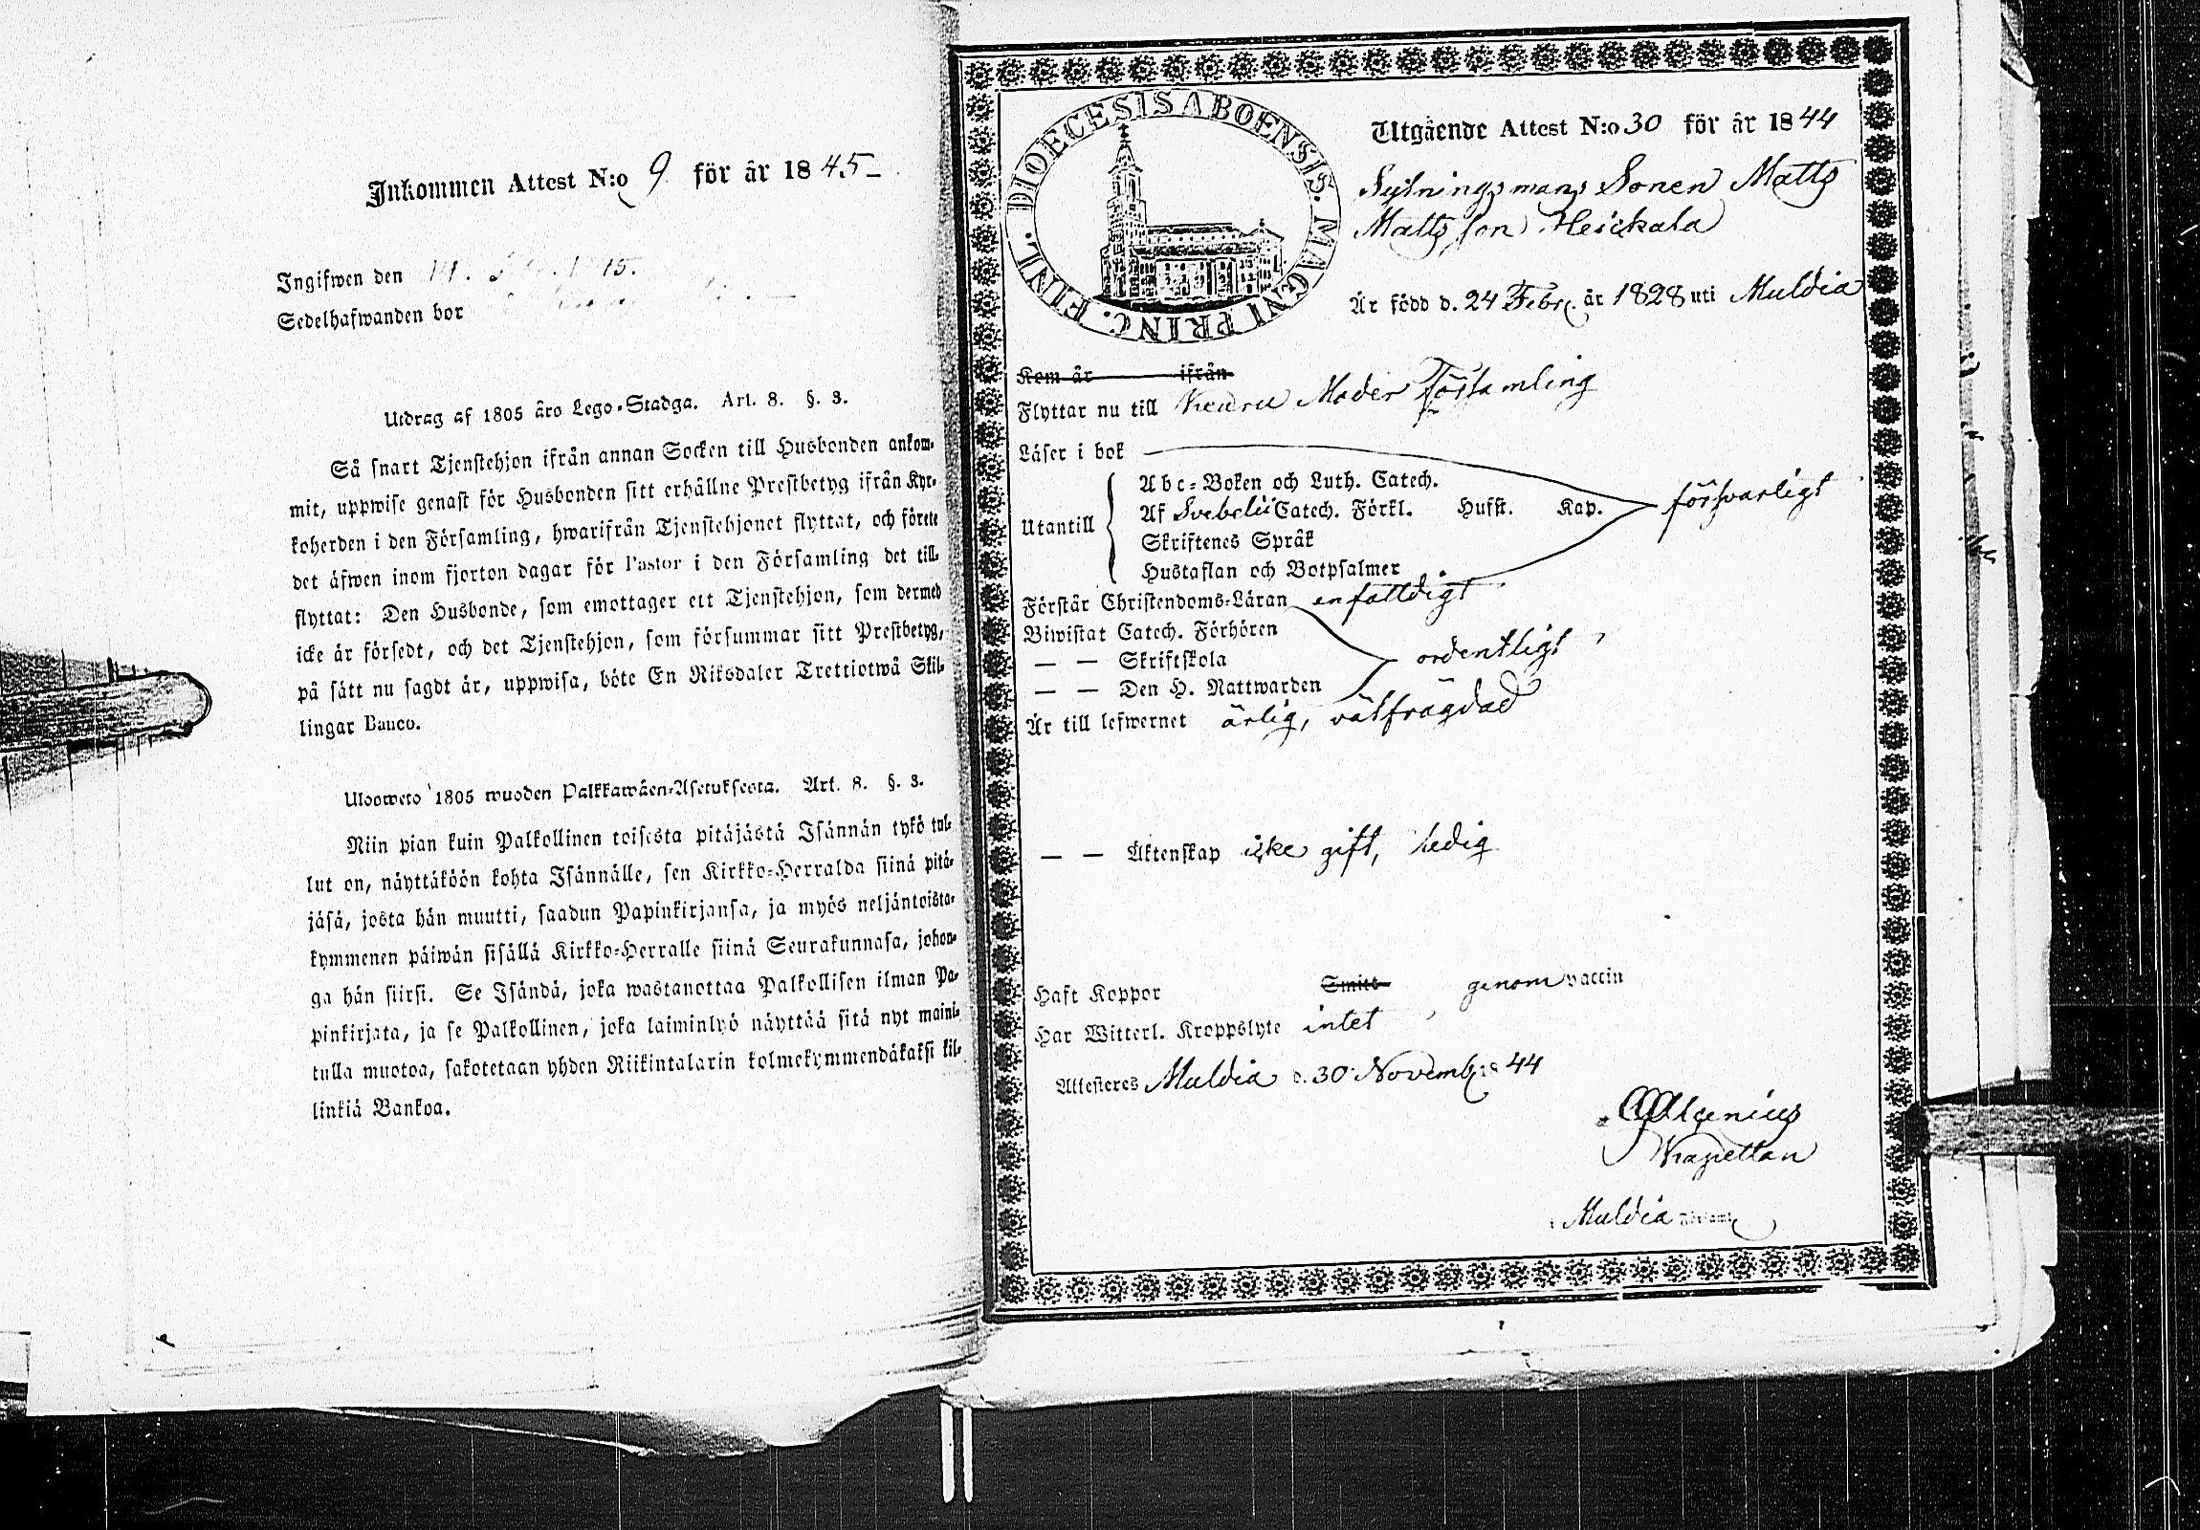 Inkommen Attest N:o 9 för år 1845
Ingifwen den
Sedelhafwanden bor
Utdrag af 1805 års Lego-Stadga. Art. 8. §. 3.
Så snart Tjenstehjon ifrån annan Socken till Husbonden ankom-
mit, uppwise genast för Husbonden sitt erhållne Prestbetyg ifrån Kyr-
koherden i den Församling, hwarifrån Tjenstehjonet flyttat, och förete
det äfwen inom fjorton dagar för Pastor i den Församling det till-
flyttat: Den Husbonde, som emottager ett Tjenstehjon, som dermed
icke är försedt, och det Tjenstehjon, som försummar sitt Prestbetyg,
på sätt nu sagdt är, uppwisa, böte En Riksdaler Trettiotwå Skil-
lingar Banco.
Ulosweto 1805 wuoden Palkkawäen-Asetuksesta. Art. 8. §. 3.
Niin pian kuin Palkollinen toisesta pitäjästä Isännän tykö tul-
lut on, näyttäköön kohta Isännälle, sen Kirkko-Herralda siinä pitä-
jäsä, josta hän muutti, saadun Papinkirjansa, ja myös neljäntoista-
kymmenen päiwän sisällä Kirkko-Herralle siinä Seurakunnasa, johon-
ga hän siirsi. Se Isändä, joka wastanottaa Palkollisen ilman Pa-
pinkirjata, ja se Palkollinen, joka laiminlyö näyttää sitä nyt maini-
tulla muotoa, sakotetaan yhden Riikintalarin kolmekymmendäkaksi kil-
linkiä Bankoa.
DIOECESIS ABOENSIS. MAGNI PRINC. FINL.
Utgående Attest N:o 30 för år 1844
Sytningsmans Sonen Matts
Mattsson Heickala
Är född d. 24 Febr. år 1828 uti Muldia
Kom år ifrån
Flyttar nu till Keuru Moder församling
Läser i bok
Utantill
Abc-Boken och Luth. Catech.
Af Svebelii Catech. Förkl. Hufst. Kap. försvarligt
Skriftenes Språk
Hustaflan och Botpsalmer
Förstår Christendoms-Läran enfaldigt
Biwistat Catech. Förhören
— — Skriftskola ordentligt
— — Den H. Nattwarden
Är till lefwernet ärlig, välfrägdad
— — Äktenskap icke gift, ledig
Haft Koppor Smitt genom vaccin
Har Witterl. Kroppslyte intet
Attesteres Muldia d. 30 Novemb. 18 44
Kapellan
i Muldia